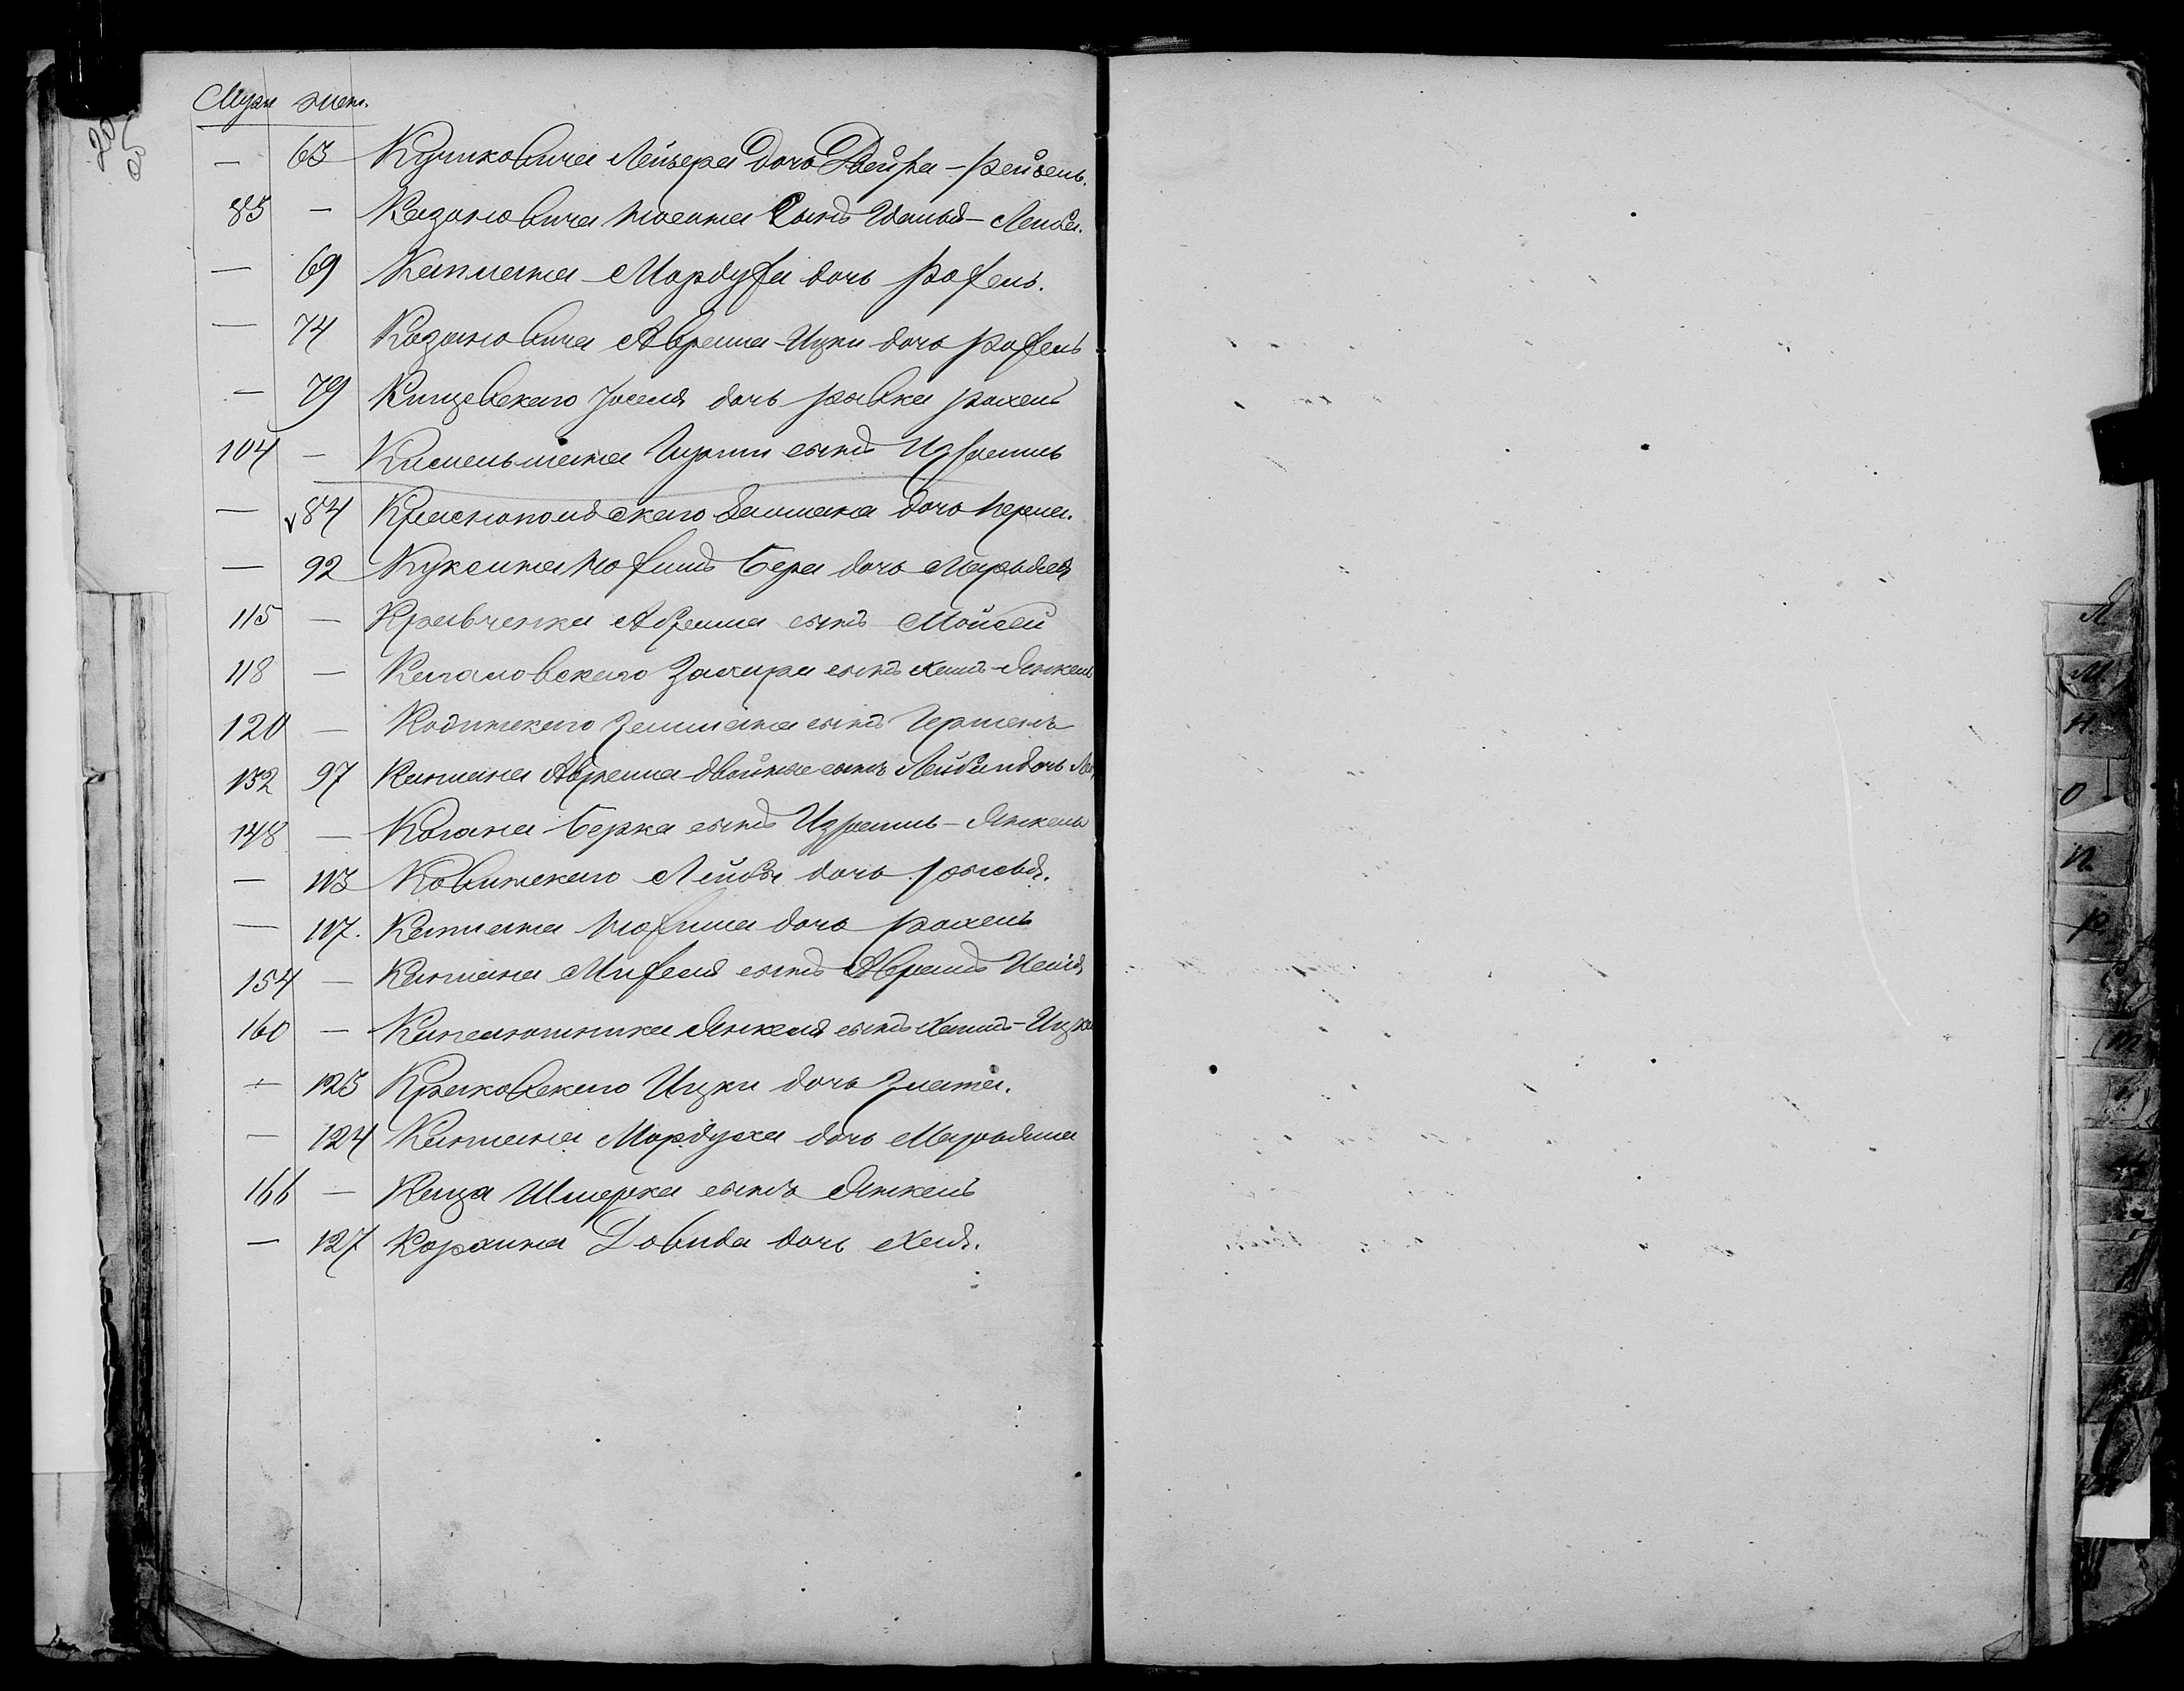 Муж жен.
— 63 Кучиковича Лейзера дочь Двейра-рейзель.
85 — Казановича Мошка Сынъ Шолыя-Лейба.
— 69 Каплана Мордуха дочь рохель.
— 74 Казановича Аврама-Ицки дочь рохель
— 79 Кищевскаго Іоселя дочь рывка рахель
104 — Кисельмана Гирши сынъ Израиль
— 84 Краснопольскаго Залмана дочь Перла.
— 92 Куксина Нохимъ Бера дочь Марьяся
115 — Кравченка Абрама сынъ Мойсей
118 — Качановскаго Захара сынъ Хаимъ-Янкель
120 — Кодинскаго Залмана сынъ Германъ
132 97 Кагана Абрама двойные сынъ Лейба и дочь
148 — Когана Берка сынъ Израиль-Янкель
— 113 Ковинскаго Лейбы дочь рысья.
— 117. Каплана Нохима дочь рахель
154 — Кагана Михеля сынъ Аврамъ
160 — Капелюшника Янкеля сынъ Хаимъ-Ицка
— 123 Крыжовскаго Ицки дочь Злата.
— 124 Кагана Мордуха дочь Марьяша
166 — Каца Шмерка сынъ Янкель
— 127 Корхина Довида дочь Хая.
Л
М
Н.
О
П.
Р